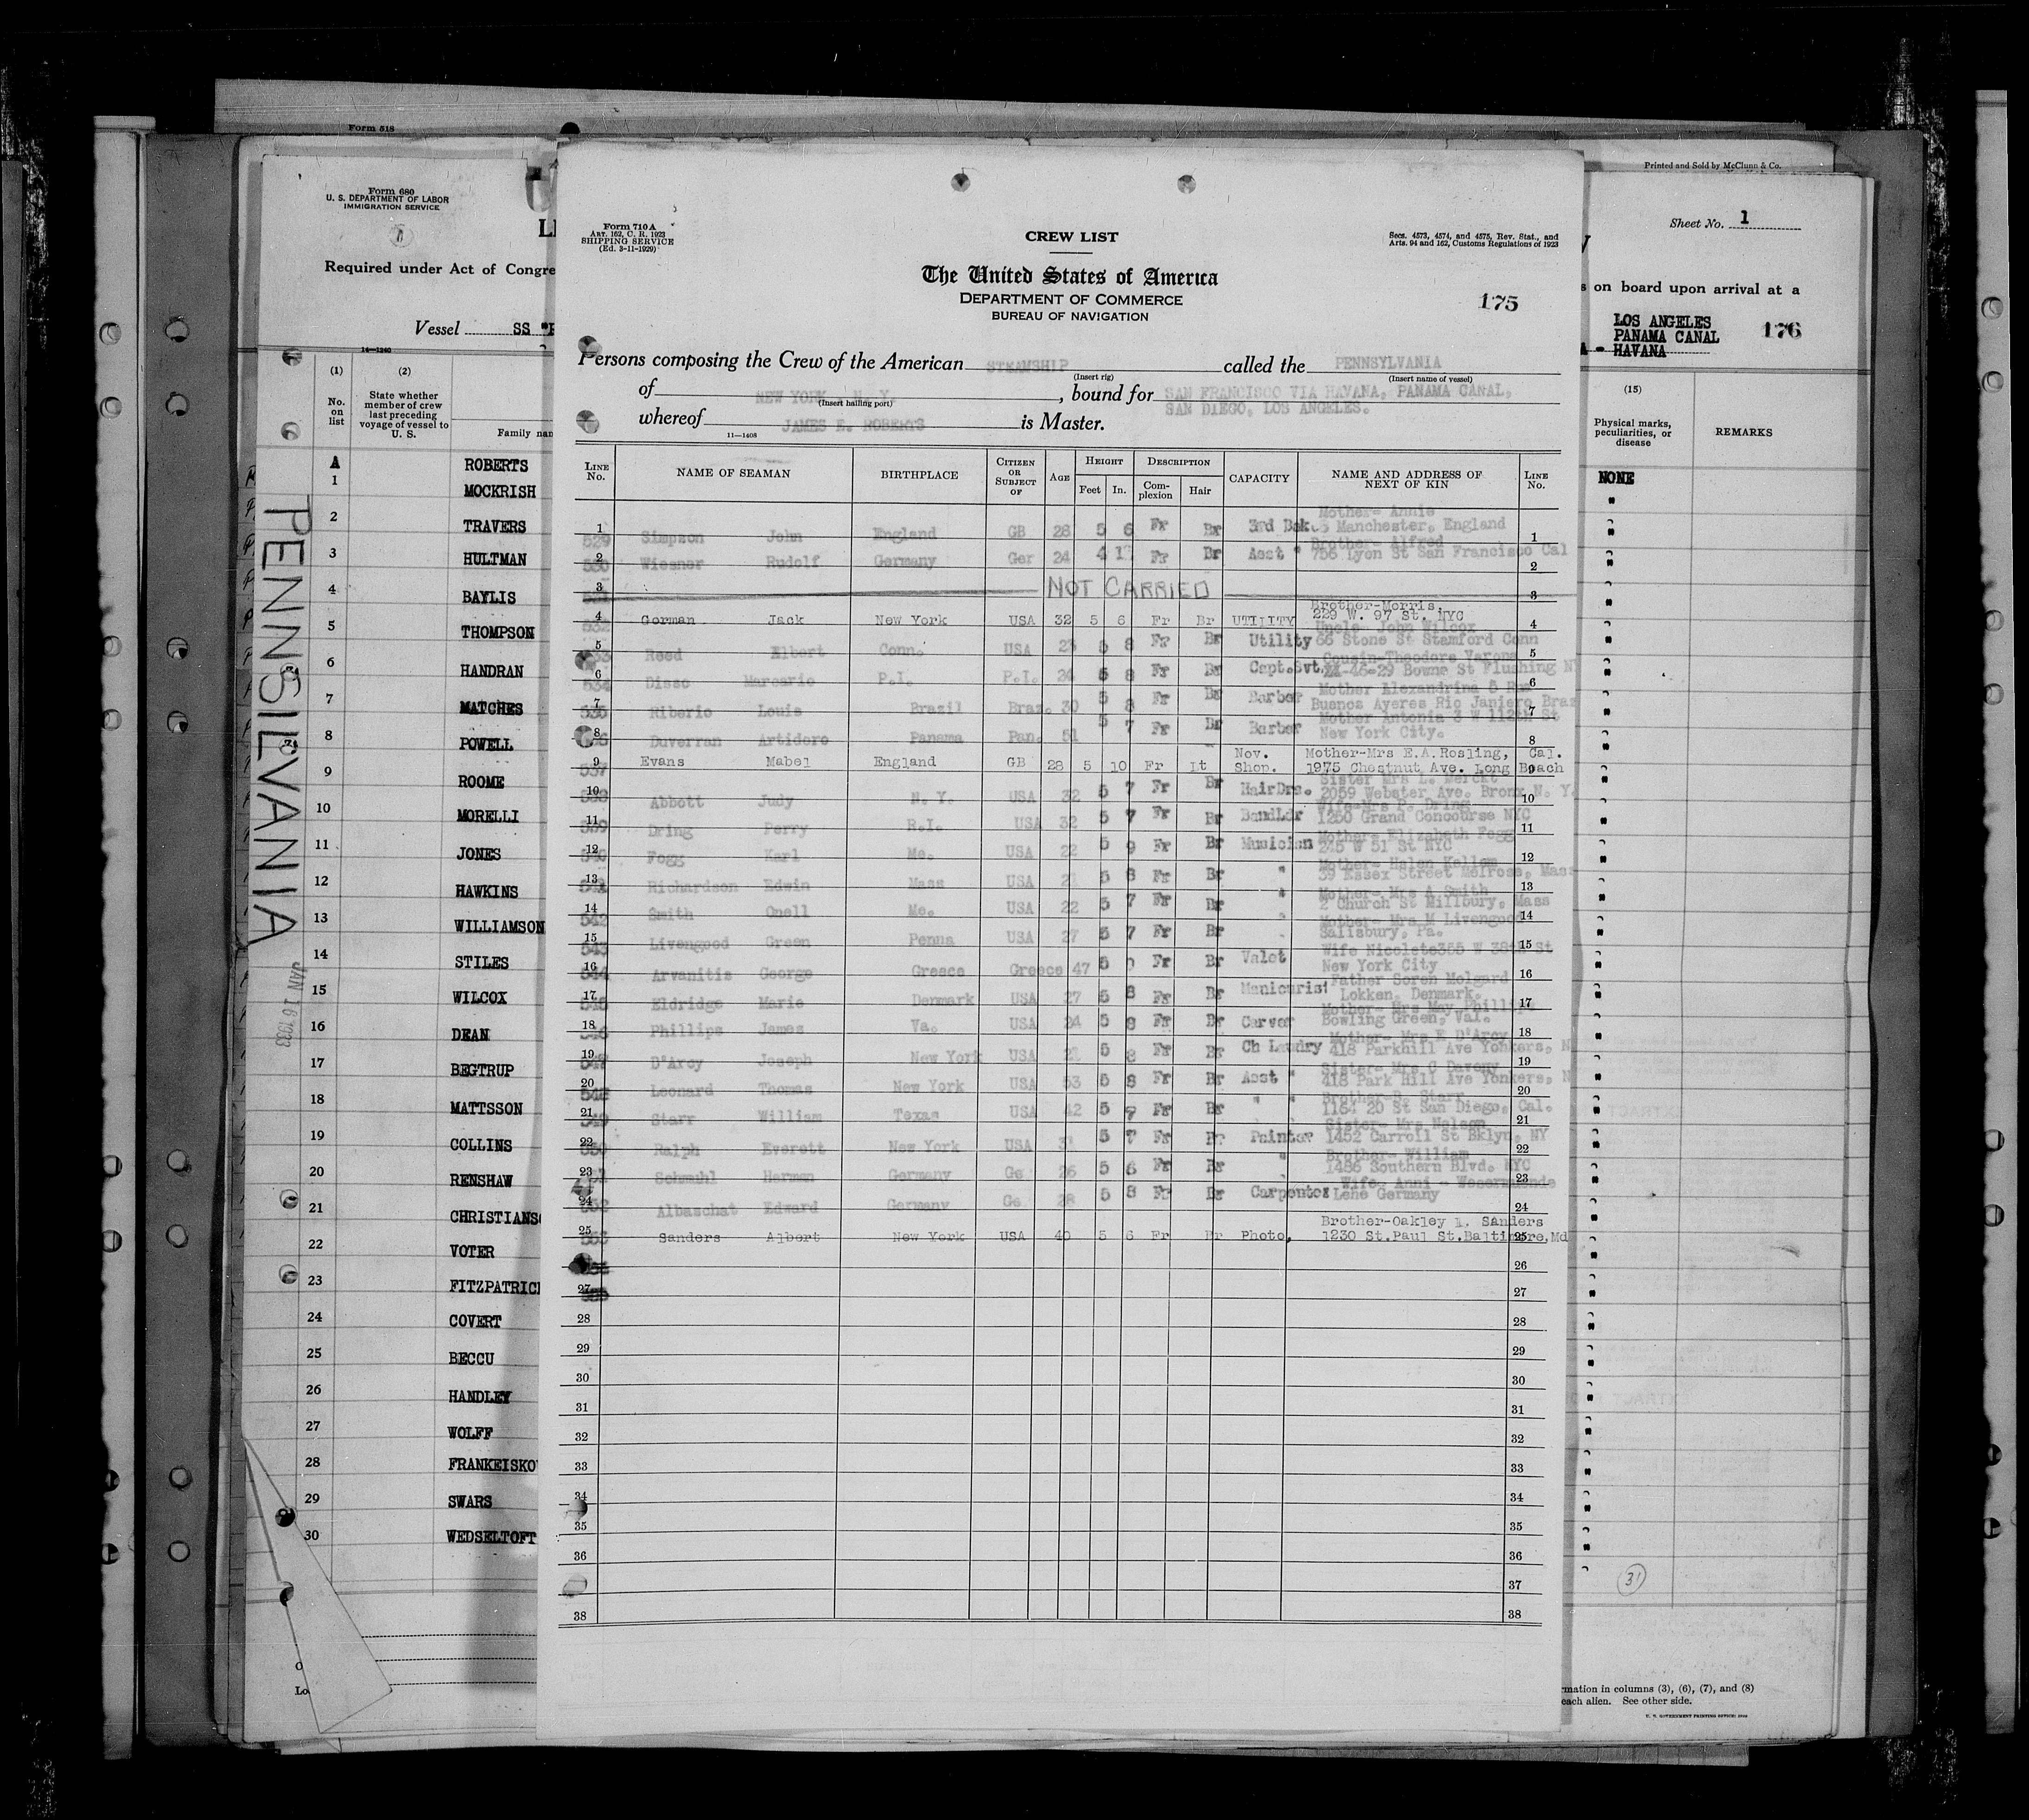 Form 518
Printed and Sold by McClunn & Co.
Form 680
U. S. DEPARTMENT OF LABOR
IMMIGRATION SERVICE
Required under Act of Congre
Vessel SS "P
14—1240
(1) (2)
No. on list
State whether member of crew last preceding voyage of vessel to U. S.
Family nam
A ROBERTS
1 MOCKRISH
2 TRAVERS
3 HULTMAN
4 BAYLIS
5 THOMPSON
6 HANDRAN
7 MATCHES
8 POWELL
9 ROOME
10 MORELLI
11 JONES
12 HAWKINS
13 WILLIAMSON
14 STILES
15 WILCOX
16 DEAN
17 BEGTRUP
18 MATTSSON
19 COLLINS
20 RENSHAW
21 CHRISTIANS
22 VOTER
23 FITZPATRICK
24 COVERT
25 BECCU
26 HANDLEY
27 WOLFF
28 FRANKEISKO
29 SWARS
30 WEDSELTOFT
PENNSILVANIA
JAN 16 1933
Lo
Form 710 A
ART. 162, C. R. 1923
SHIPPING SERVICE
(Ed. 3-11-1929)
CREW LIST
Secs. 4573, 4574, and 4575, Rev. Stat., and
Arts. 94 and 162, Customs Regulations of 1923
The United States of America
DEPARTMENT OF COMMERCE
BUREAU OF NAVIGATION
175
Persons composing the Crew of the American STEAMSHIP called the PENNSYLVANIA
(Insert rig) (Insert name of vessel)
of NEW YORK N.Y. , bound for SAN FRANCISCO VIA HAVANA, PANAMA CANAL,
(Insert hailing port) SAN DIEGO, LOS ANGELES.
whereof JAMES E. ROBERTS is Master.
11—1408
LINE No. NAME OF SEAMAN BIRTHPLACE CITIZEN OR SUBJECT OF AGE HEIGHT Feet In. DESCRIPTION Complexion Hair CAPACITY NAME AND ADDRESS OF NEXT OF KIN LINE No.
Mother- Annie
1 529 Simpson John England GB 28 5 6 Fr Br 3rd Bak. Manchester, England 1
Brother- Alfred
2 Wiesner Rudolf Germany Ger 24 4 Fr Br Asst " 756 Lyon St San Francisco Cal 2
3 NOT CARRIED 3
Brother-Morris,
4 532 Gorman Jack New York USA 32 5 6 Fr Br UTILITY 229 W. 97 St. NYC 4
Uncle- John Wilcox
5 Reed Elbert Conn. USA 5 8 Fr Br Utility 66 Stone St Stamford Conn 5
Cousin-Theodore Varona
6 534 Disso Marcario P.I. P.I. 5 8 Fr Br Capt.Svt. 46-29 Bowne St Flushing N 6
Mother Alexandrina 5 Rua
7 535 Riberio Louis Brazil Braz. 30 5 8 Fr Br Barber Buenos Ayeres Rio Janiero Braz 7
Mother Antonia 3 W 112th St
8 Duverran Artidoro Panama Pan. 51 5 7 Fr Br Barber New York City. 8
Nov. Mother-Mrs E.A.Rosling, Cal.
9 537 Evans Mabel England GB 28 5 10 Fr Lt Shop. 1975 Chestnut Ave. Long Beach 9
Sister Mrs L. Merckt
10 Abbott Judy N. Y. USA 32 5 7 Fr Br HairDrs. 2059 Webster Ave. Bronx N. Y. 10
Wife-Mrs P. Dring
11 539 Dring Perry R.I. USA 32 5 7 Fr Br BandLdr 1250 Grand Concourse NYC 11
Mother- Elizabeth Fogg
12 Fogg Karl Me. USA 22 5 9 Fr Br Musician 245 W 51 St NYC 12
Mother- Helen Kellom
13 Richardson Edwin Mass USA 5 8 Fr Br " 39 Essex Street Melrose, Mass 13
Mother- Mrs A Smith
14 542 Smith Onell Me. USA 22 5 7 Fr Br " 2 Church St Millbury, Mass 14
Mother- Mrs M Livengood
15 543 Livengood Green Penna USA 27 5 7 Fr Br " Salisbury, Pa. 15
Wife Nicolete 365 W 38th St
16 544 Arvanitis George Greece Greece 47 5 Fr Br Valet New York City 16
Father Soren Melgard
17 Eldridge Marie Denmark USA 27 5 8 Fr Br Manicurist Lokken, Denmark. 17
Mother- Mrs May Phillips
18 546 Phillips James Va. USA 24 5 8 Fr Br Carver Bowling Green, Val. 18
Mother- Mrs E D'Arcy
19 D'Arcy Joseph New York USA 5 8 Fr Br Ch Laundry 418 Parkhill Ave Yonkers, N 19
Sister- Mrs C Daveny
20 Leonard Thomas New York USA 53 5 8 Fr Br Asst " 418 Park Hill Ave Yonkers, N 20
Brother-D. Starr
21 549 Starr William Texas USA 42 5 Fr Br " " 1164 20 St San Diego, Cal. 21
Sister- Mrs Nelson
22 550 Ralph Everett New York USA 5 7 Fr Br Painter 1452 Carroll St Bklyn, NY 22
Brother- William
23 Schmuhl Herman Germany Ge 26 5 6 Fr Br " 1486 Southern Blvd. NYC 23
Wife- Anni - Wesermuende
24 552 Albaschat Edward Germany Ge 28 5 8 Fr Br Carpenter Lehe Germany 24
Brother-Oakley L. Sanders
25 553 Sanders Albert New York USA 40 5 6 Fr Br Photo. 1230 St.Paul St.Baltimore,Md 25
26
27 27
28 28
29 29
30 30
31 31
32 32
33 33
34 34
35 35
36 36
37 37
38 38
Sheet No. 1
s on board upon arrival at a
LOS ANGELES
PANAMA CANAL
- HAVANA
176
(15)
Physical marks, peculiarities, or disease
REMARKS
NONE
31
mation in columns (3), (6), (7), and (8)
each alien. See other side.
U. S. GOVERNMENT PRINTING OFFICE